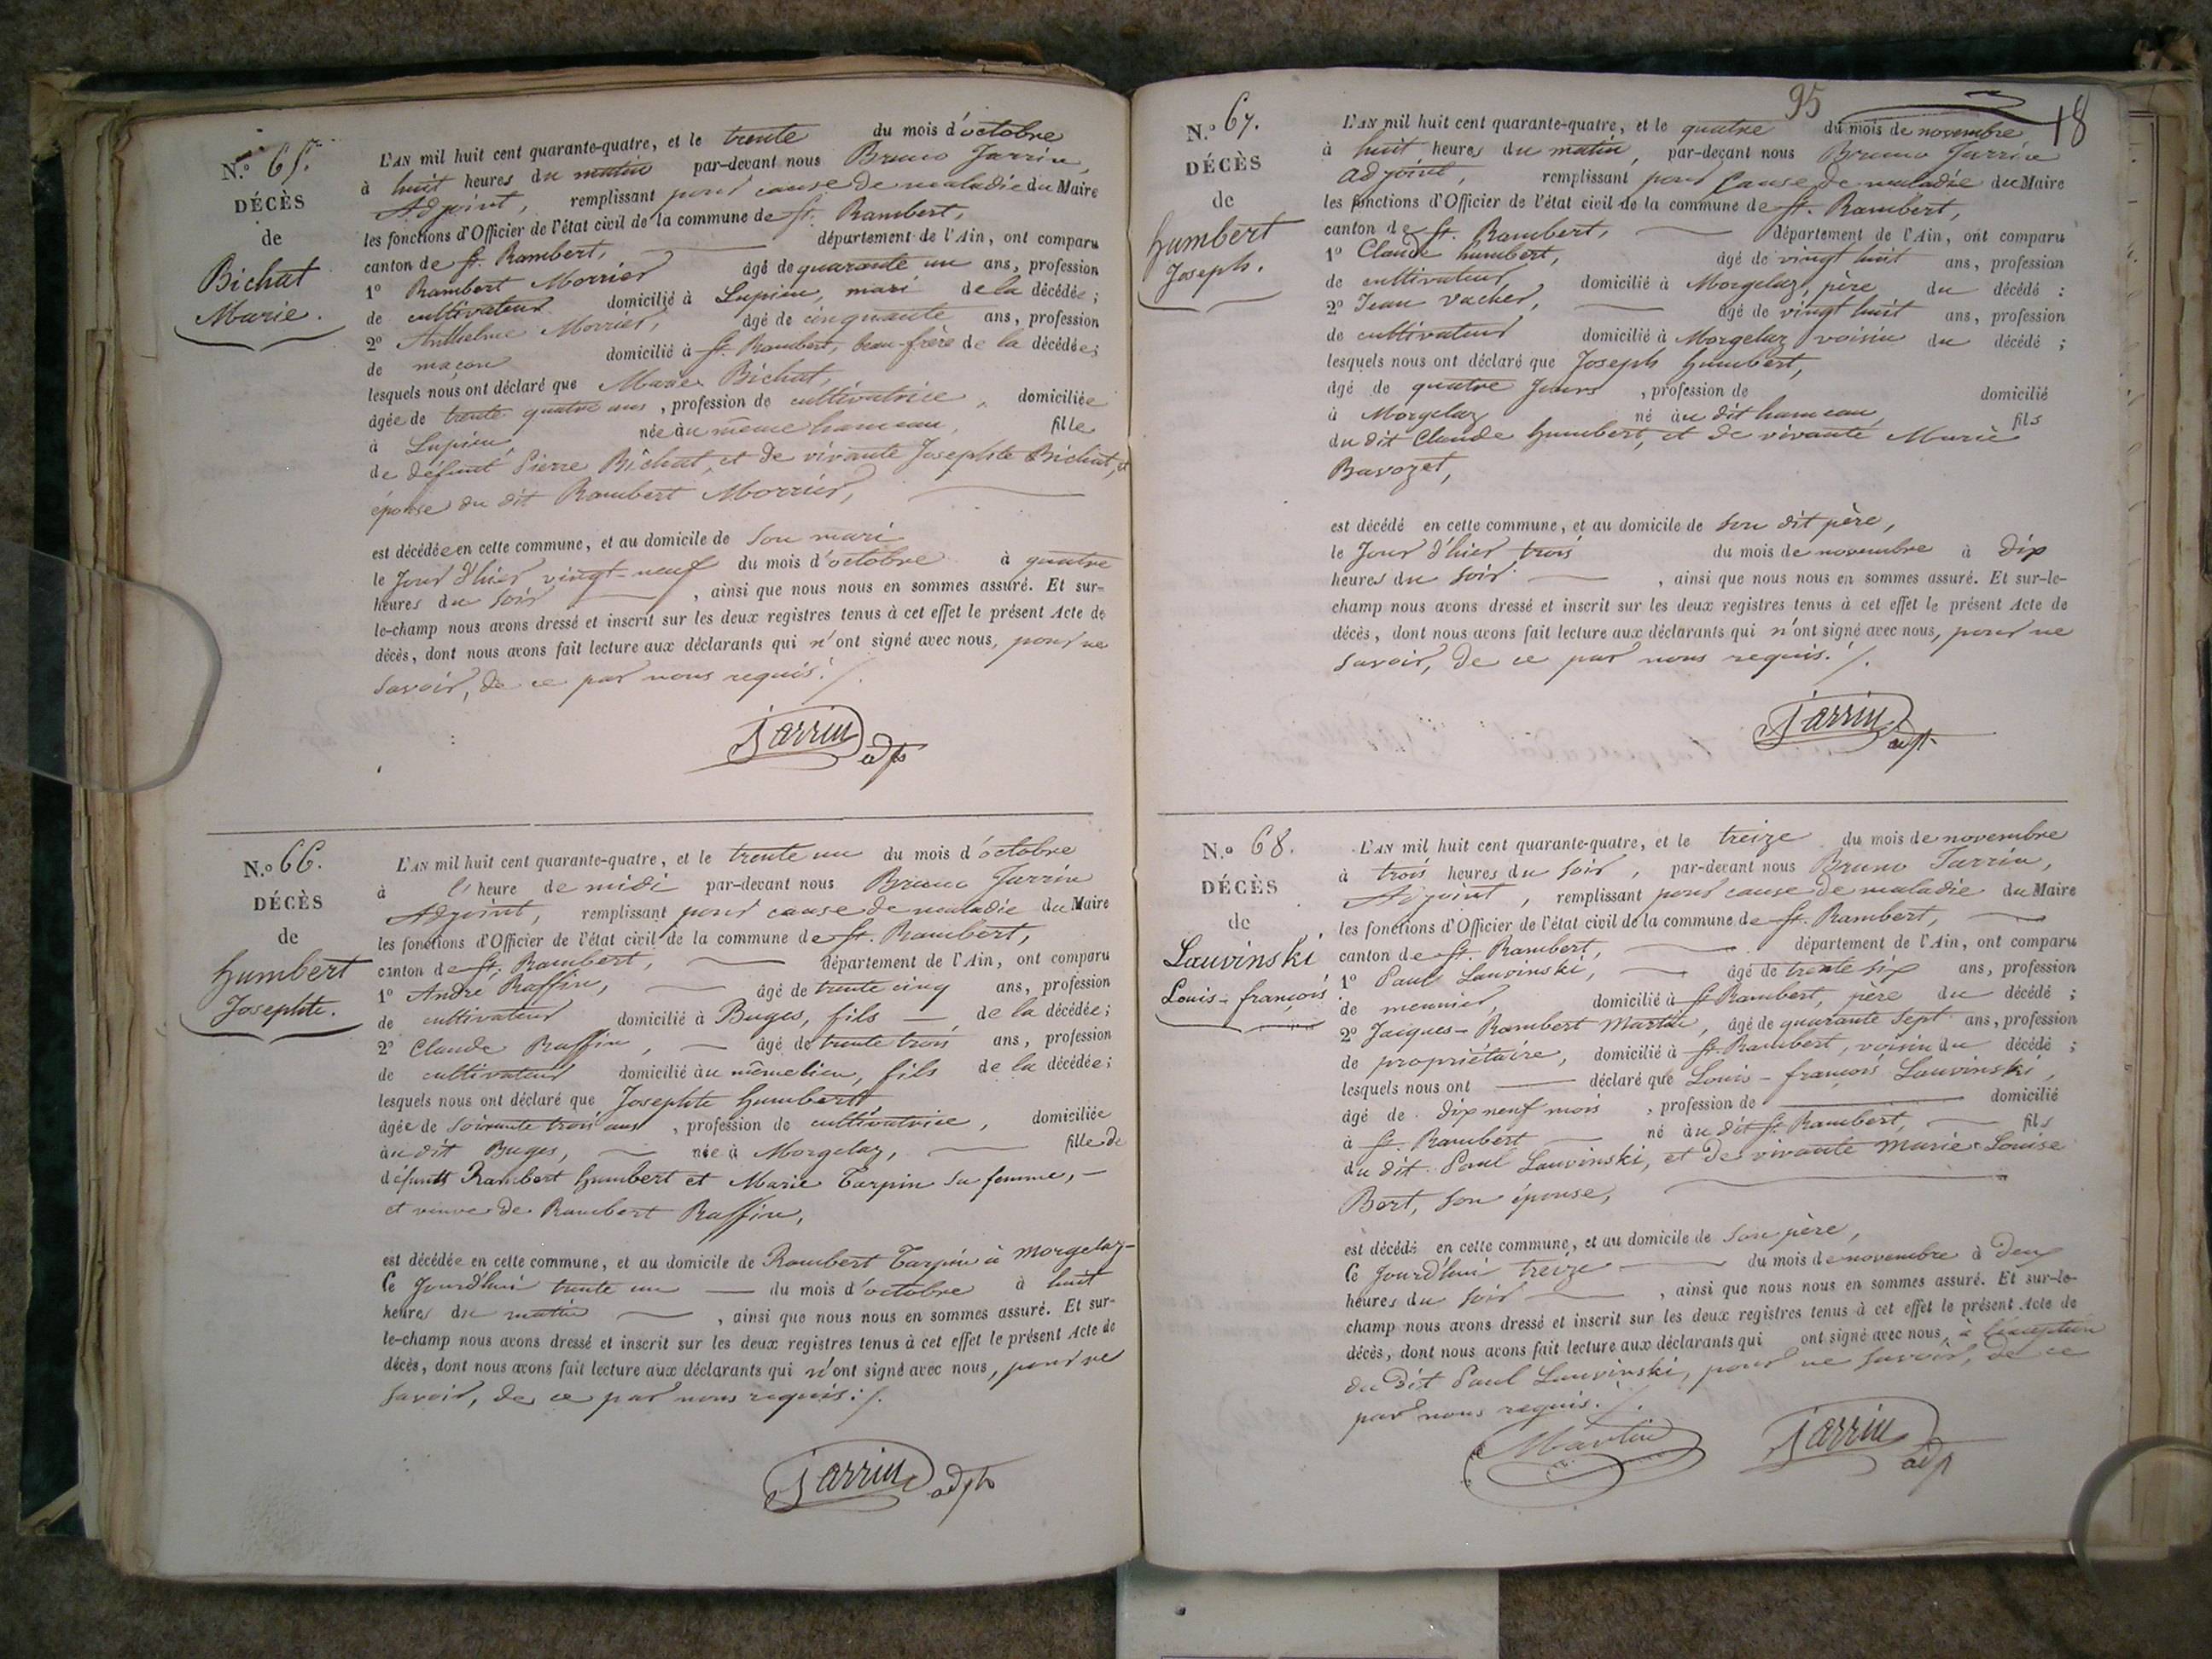 N.º 65.
DÉCÈS
de
Bichat
Marie.
L'AN mil huit cent quarante-quatre, et le trente du mois d'octobre
à huit heures du matin par-devant nous Bruno Jarrin
Adjoint, remplissant pour cause de maladie du Maire
les fonctions d'Officier de l'état civil de la commune de St. Rambert,
canton de St. Rambert, département de l'Ain, ont comparu
1º Rambert Morrier âgé de quarante un ans, profession
de cultivateur domicilié à Lupieu, mari de la décédée ;
2º Anthelme Morrier, âgé de cinquante ans, profession
de maçon domicilié à St. Rambert, beau-frère de la décédée;
lesquels nous ont déclaré que Marie Bichat,
âgée de trente quatre ans, profession de cultivatrice, domiciliée
à Lupieu, née au même hameau, fille
de défunt Pierre Bichat, et de vivante Josephte Bichat, et
épouse du dit Rambert Morrier,
est décédée en cette commune, et au domicile de son mari
le jour d'hier vingt-neuf du mois d'octobre à quatre
heures du soir, ainsi que nous nous en sommes assuré. Et sur-
le-champ nous avons dressé et inscrit sur les deux registres tenus à cet effet le présent Acte de
décès, dont nous avons fait lecture aux déclarants qui n'ont signé avec nous, pour ne
savoir, de ce par nous requis ./.
Jarrin adjt
N.º 66.
DÉCÈS
de
humbert
Josephte.
L'AN mil huit cent quarante-quatre, et le trente un du mois d'octobre
à l'heure de midi par-devant nous Bruno Jarrin
Adjoint, remplissant pour cause de maladie du Maire
les fonctions d'Officier de l'état civil de la commune de St. Rambert,
canton de St. Rambert, département de l'Ain, ont comparu
1º André Raffin, âgé de trente cinq ans, profession
de cultivateur domicilié à Buges, fils de la décédée;
2º Claude Raffin, âgé de trente trois ans, profession
de cultivateur domicilié au même lieu, fils de la décédée;
lesquels nous ont déclaré que Josephte humbert
âgée de soixante trois ans, profession de cultivatrice, domiciliée
au dit Buges, née à Morgelaz, fille de
défunts Rambert humbert et Marie Tarpin sa femme,
et veuve de Rambert Raffin,
est décédée en cette commune, et au domicile de Rambert Tarpin à Morgelaz
Ce jourd'hui trente un du mois d'octobre à huit
heures du matin, ainsi que nous nous en sommes assuré. Et sur-
le-champ nous avons dressé et inscrit sur les deux registres tenus à cet effet le présent Acte de
décès, dont nous avons fait lecture aux déclarants qui n'ont signé avec nous, pour ne
savoir, de ce par nous requis :/.
Jarrin adjt
95
18
N.º 67.
DÉCÈS
de
humbert
Joseph.
L'AN mil huit cent quarante-quatre, et le quatre du mois de novembre
à huit heures du matin, par-devant nous Bruno Jarrin
adjoint, remplissant pour Cause de maladie du Maire
les fonctions d'Officier de l'état civil de la commune de St. Rambert,
canton de St. Rambert, département de l'Ain, ont comparu
1º Claude humbert, âgé de vingt huit ans, profession
de cultivateur domicilié à Morgelaz, père du décédé :
2º Jean Vacher, âgé de vingt huit ans, profession
de cultivateur domicilié à Morgelaz voisin du décédé ;
lesquels nous ont déclaré que Joseph humbert,
âgé de quatre jours, profession de domicilié
à Morgelaz né au dit hameau, fils
du dit Claude humbert, et de vivante Marie
Bavozet,
est décédé en cette commune, et au domicile de son dit père,
le jour d'hier trois du mois de novembre à dix
heures du soir, ainsi que nous nous en sommes assuré. Et sur-le-
champ nous avons dressé et inscrit sur les deux registres tenus à cet effet le présent Acte de
décès, dont nous avons fait lecture aux déclarants qui n'ont signé avec nous, pour ne
savoir, de ce par nous requis. /.
Jarrin adjt
N.º 68.
DÉCÈS
de
Lauvinski
Louis-françois
L'AN mil huit cent quarante-quatre, et le treize du mois de novembre
à trois heures du soir, par-devant nous Bruno Jarrin,
Adjoint, remplissant pour cause de maladie du Maire
les fonctions d'Officier de l'état civil de la commune de St. Rambert,
canton de St. Rambert, département de l'Ain, ont comparu
1º Paul Lauvinski, âgé de trente six ans, profession
de meunier, domicilié à St Rambert, père du décédé ;
2º Jacques-Rambert Martin, âgé de quarante sept ans, profession
de propriétaire, domicilié à St. Rambert, voisin du décédé ;
lesquels nous ont déclaré que Louis-françois Lauvinski,
âgé de dix neuf mois, profession de domicilié
à St. Rambert né au dit St. Rambert, fils
du dit Paul Lauvinski, et de vivante Marie Louise
Bort, son épouse,
est décédé en cette commune, et au domicile de son père,
Ce jourd'hui treize du mois de novembre à deux
heures du soir, ainsi que nous nous en sommes assuré. Et sur-le-
champ nous avons dressé et inscrit sur les deux registres tenus à cet effet le présent Acte de
décès, dont nous avons fait lecture aux déclarants qui ont signé avec nous, à l'exception
du dit Paul Lauvinski, pour ne savoir, de ce
par nous requis. /.
Martin Jarrin adjt